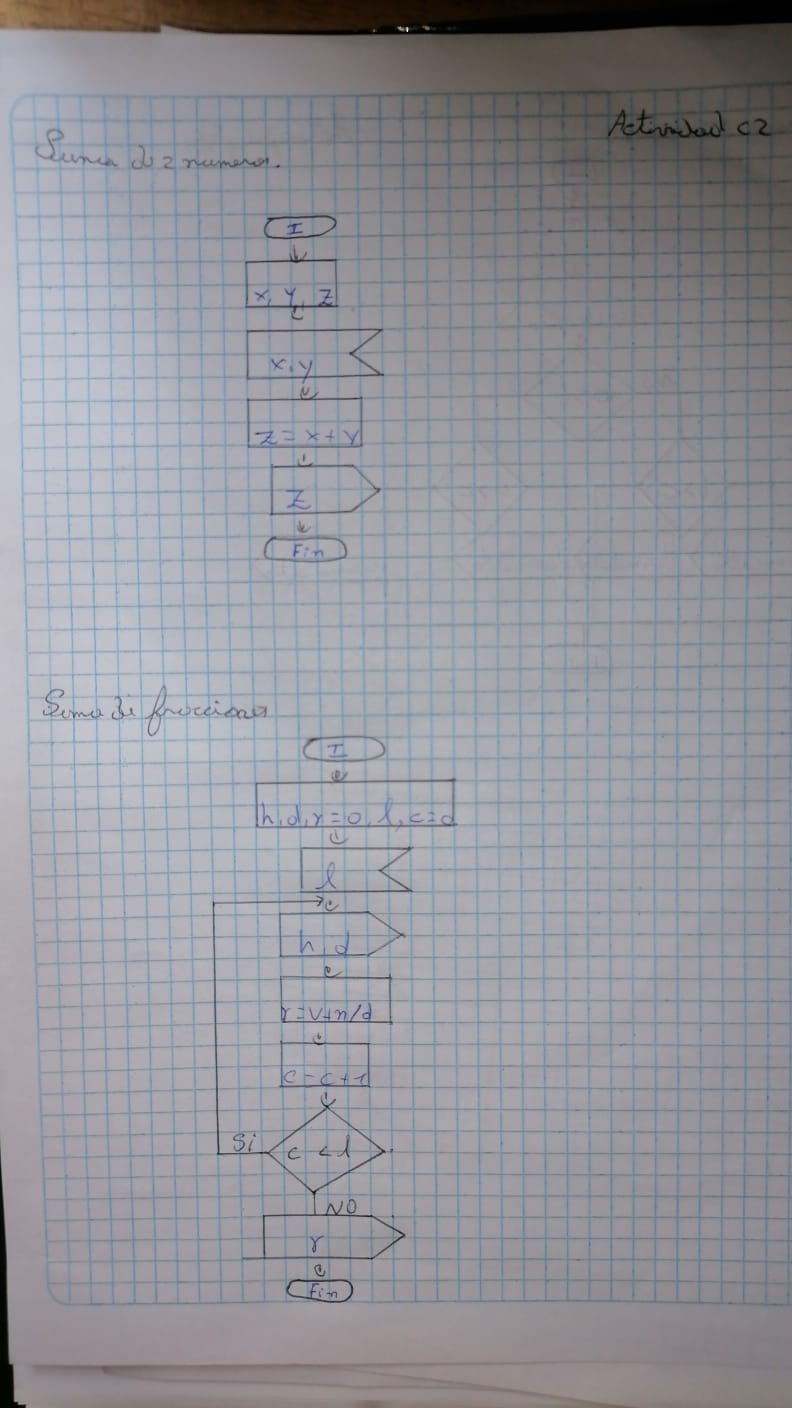 Actividad C2
Suma de 2 numeros.
I
x, y, z
x, y
z = x + y
z
Fin
Suma de fracciones
I
n, d, r=0, l, c=0
l
n, d
r=r+n/d
c=c+1
Si
c < l
NO
r
Fin